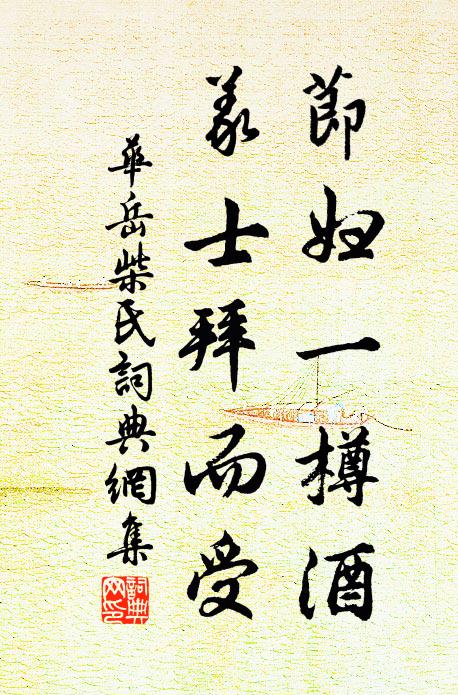 節婦一樽酒
義士拜而受
華岳柴氏詞典網集
詞典網印